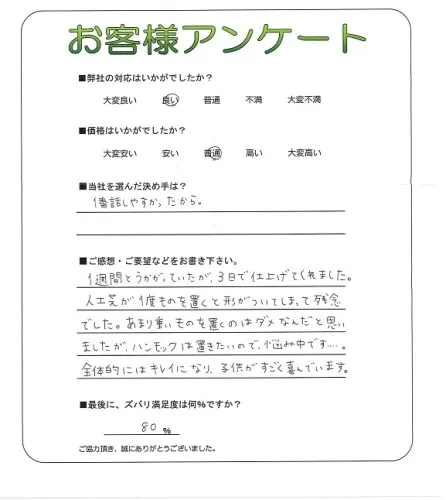 お客様アンケート
■弊社の対応はいかがでしたか？
大変良い 良い 普通 不満 大変不満
■価格はいかがでしたか？
大変安い 安い 普通 高い 大変高い
■当社を選んだ決め手は？
1番話しやすかったから。
■ご感想・ご要望などをお書き下さい。
1週間とうかがっていたが、3日で仕上げてくれました。
人工芝が1度ものを置くと形がついてしまって残念
でした。あまり重いものを置くのはダメなんだと思い
ましたが、ハンモックは置きたいので、悩み中です...。
全体的にはキレイになり、子供がすごく喜んでいます。
■最後に、ズバリ満足度は何%ですか？
80 %
ご協力頂き、誠にありがとうございました。